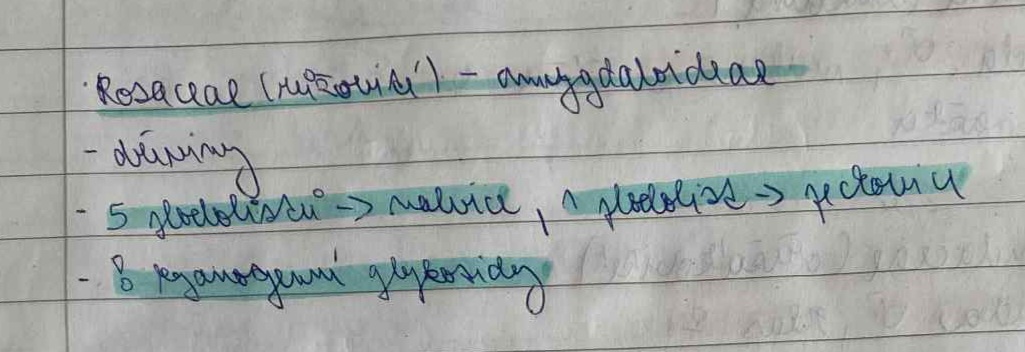 Rosaceae (růžovité) - amygdaloideae
- dřeviny
- 5 plodolistů -> malvice, 1 plodolist -> peckovice
- 8 kyanogenní glykosidy